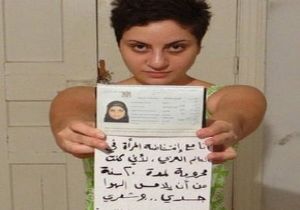 أنا مع إنتفاضة المرأة في
العالم العربي.. لأني كنت
محرومة لمدة ٢٠ سنة
من أن يلامس الهوا
جسدي.. وشعري